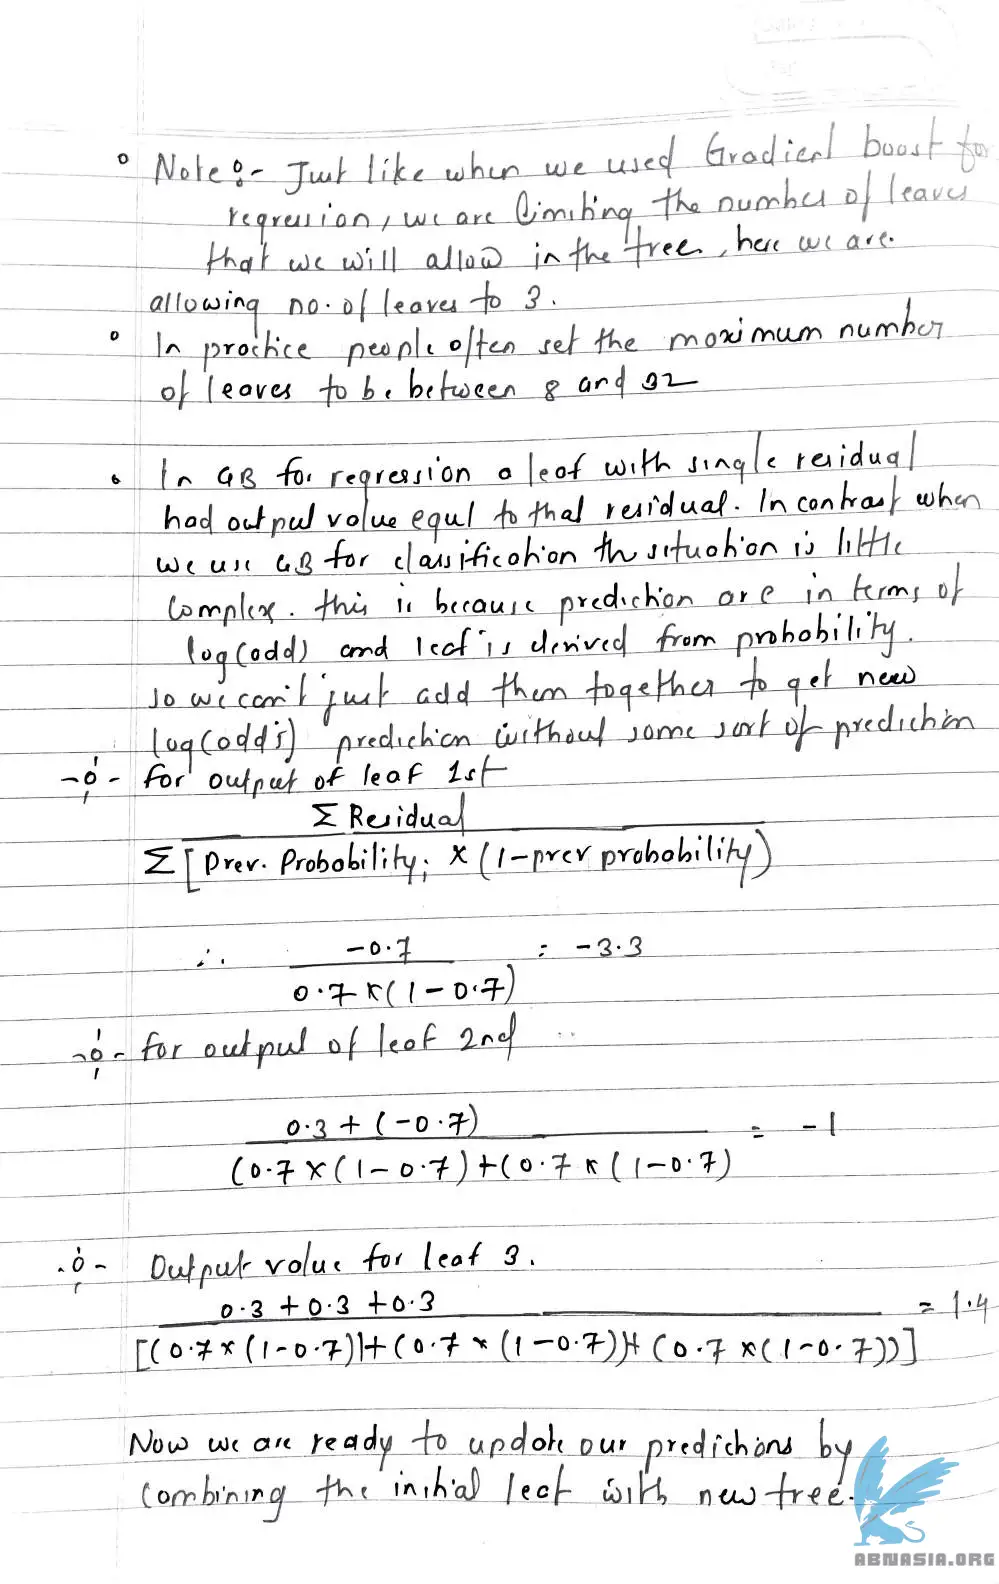 Note :- Just like when we used Gradient boost for
regression, we are limiting the number of leaves
that we will allow in the tree, here we are.
allowing no. of leaves to 3.
In practice people often set the maximum number
of leaves to be between 8 and 32
In GB for regression a leaf with single residual
had output value equl to that residual. In contrast when
we use GB for classification the situation is little
complex. this is because prediction are in terms of
log(odd) and leaf is derived from probability.
so we can't just add them together to get new
log(odd's) prediction without some sort of prediction
for output of leaf 1st
Σ Residual
Σ [Prev. Probability; × (1-prev probability)
∴ -0.7 = -3.3
0.7 × (1-0.7)
for output of leaf 2nd
0.3 + (-0.7) = -1
(0.7 × (1-0.7) + (0.7 × (1-0.7)
Output value for leaf 3.
0.3 + 0.3 + 0.3 = 1.4
[(0.7 × (1-0.7)) + (0.7 × (1-0.7)) + (0.7 × (1-0.7))]
Now we are ready to update our predictions by
combining the initial leaf with new tree.
ABNASIA.ORG